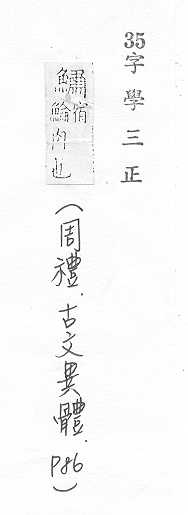 35字學三正
鱐宿
也
(周禮.古文異體.P86)